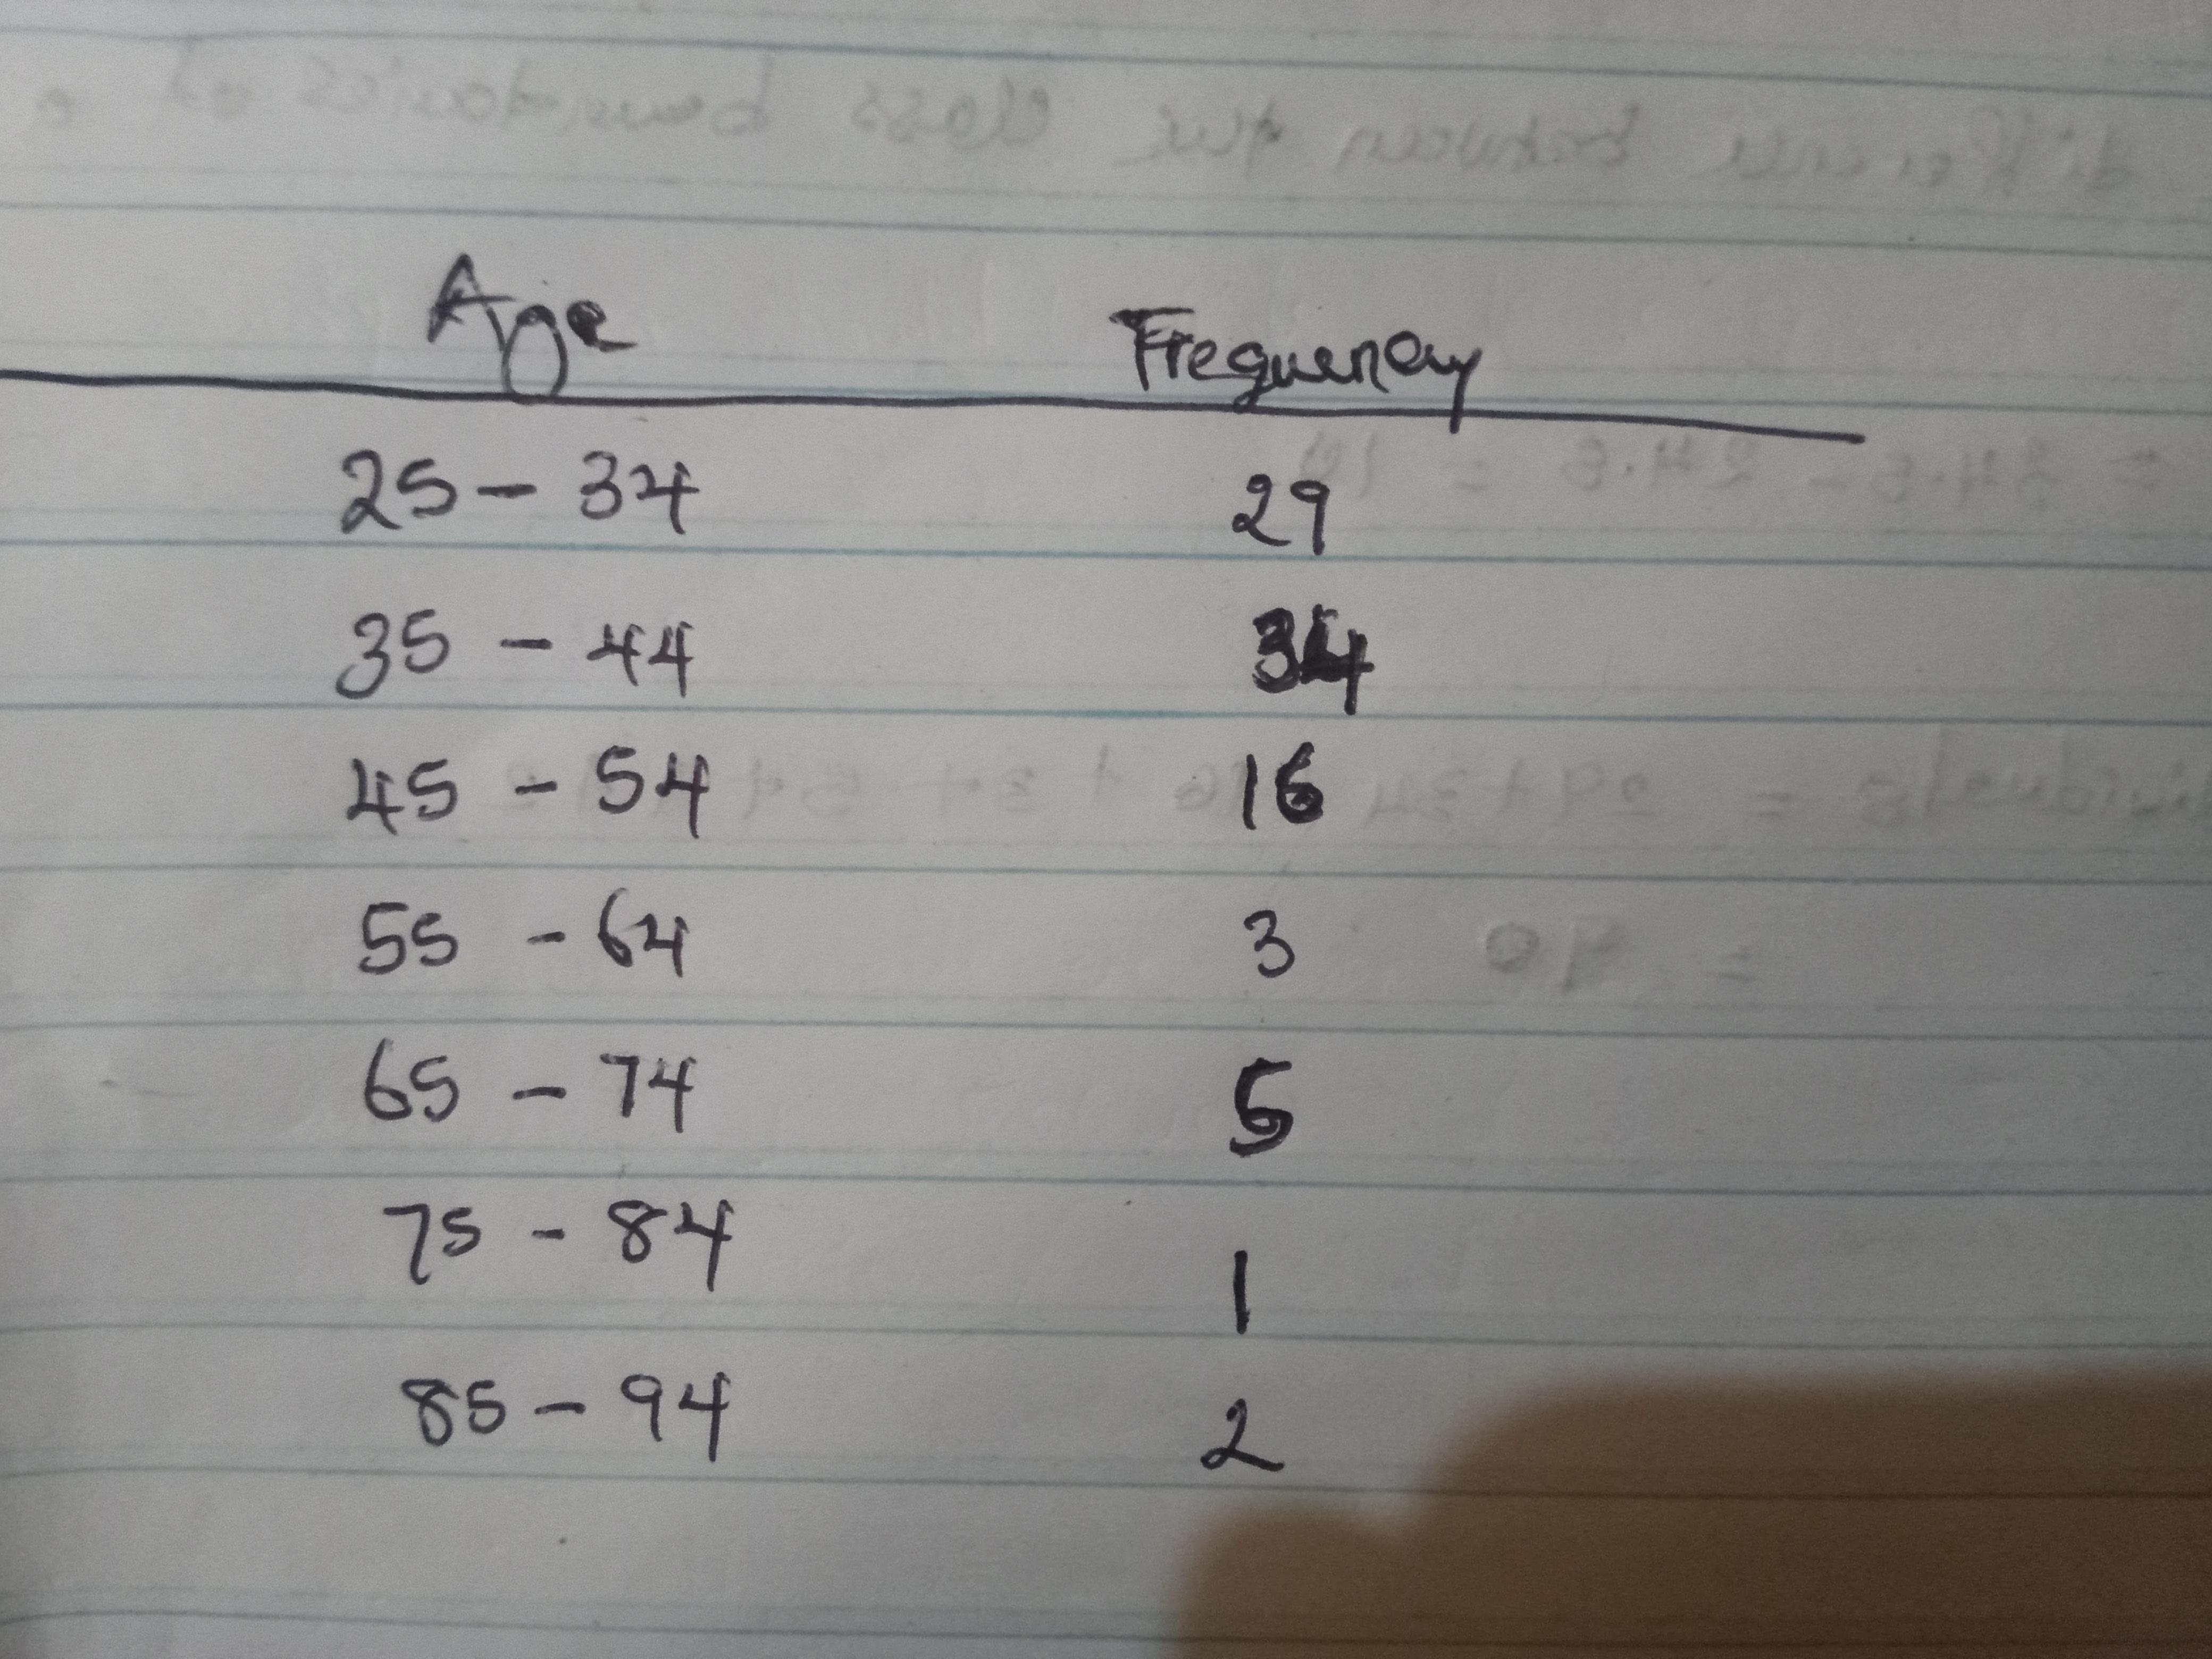 Age Frequency
25 - 34 29
35 - 44 34
45 - 54 16
55 - 64 3
65 - 74 5
75 - 84 1
85 - 94 2